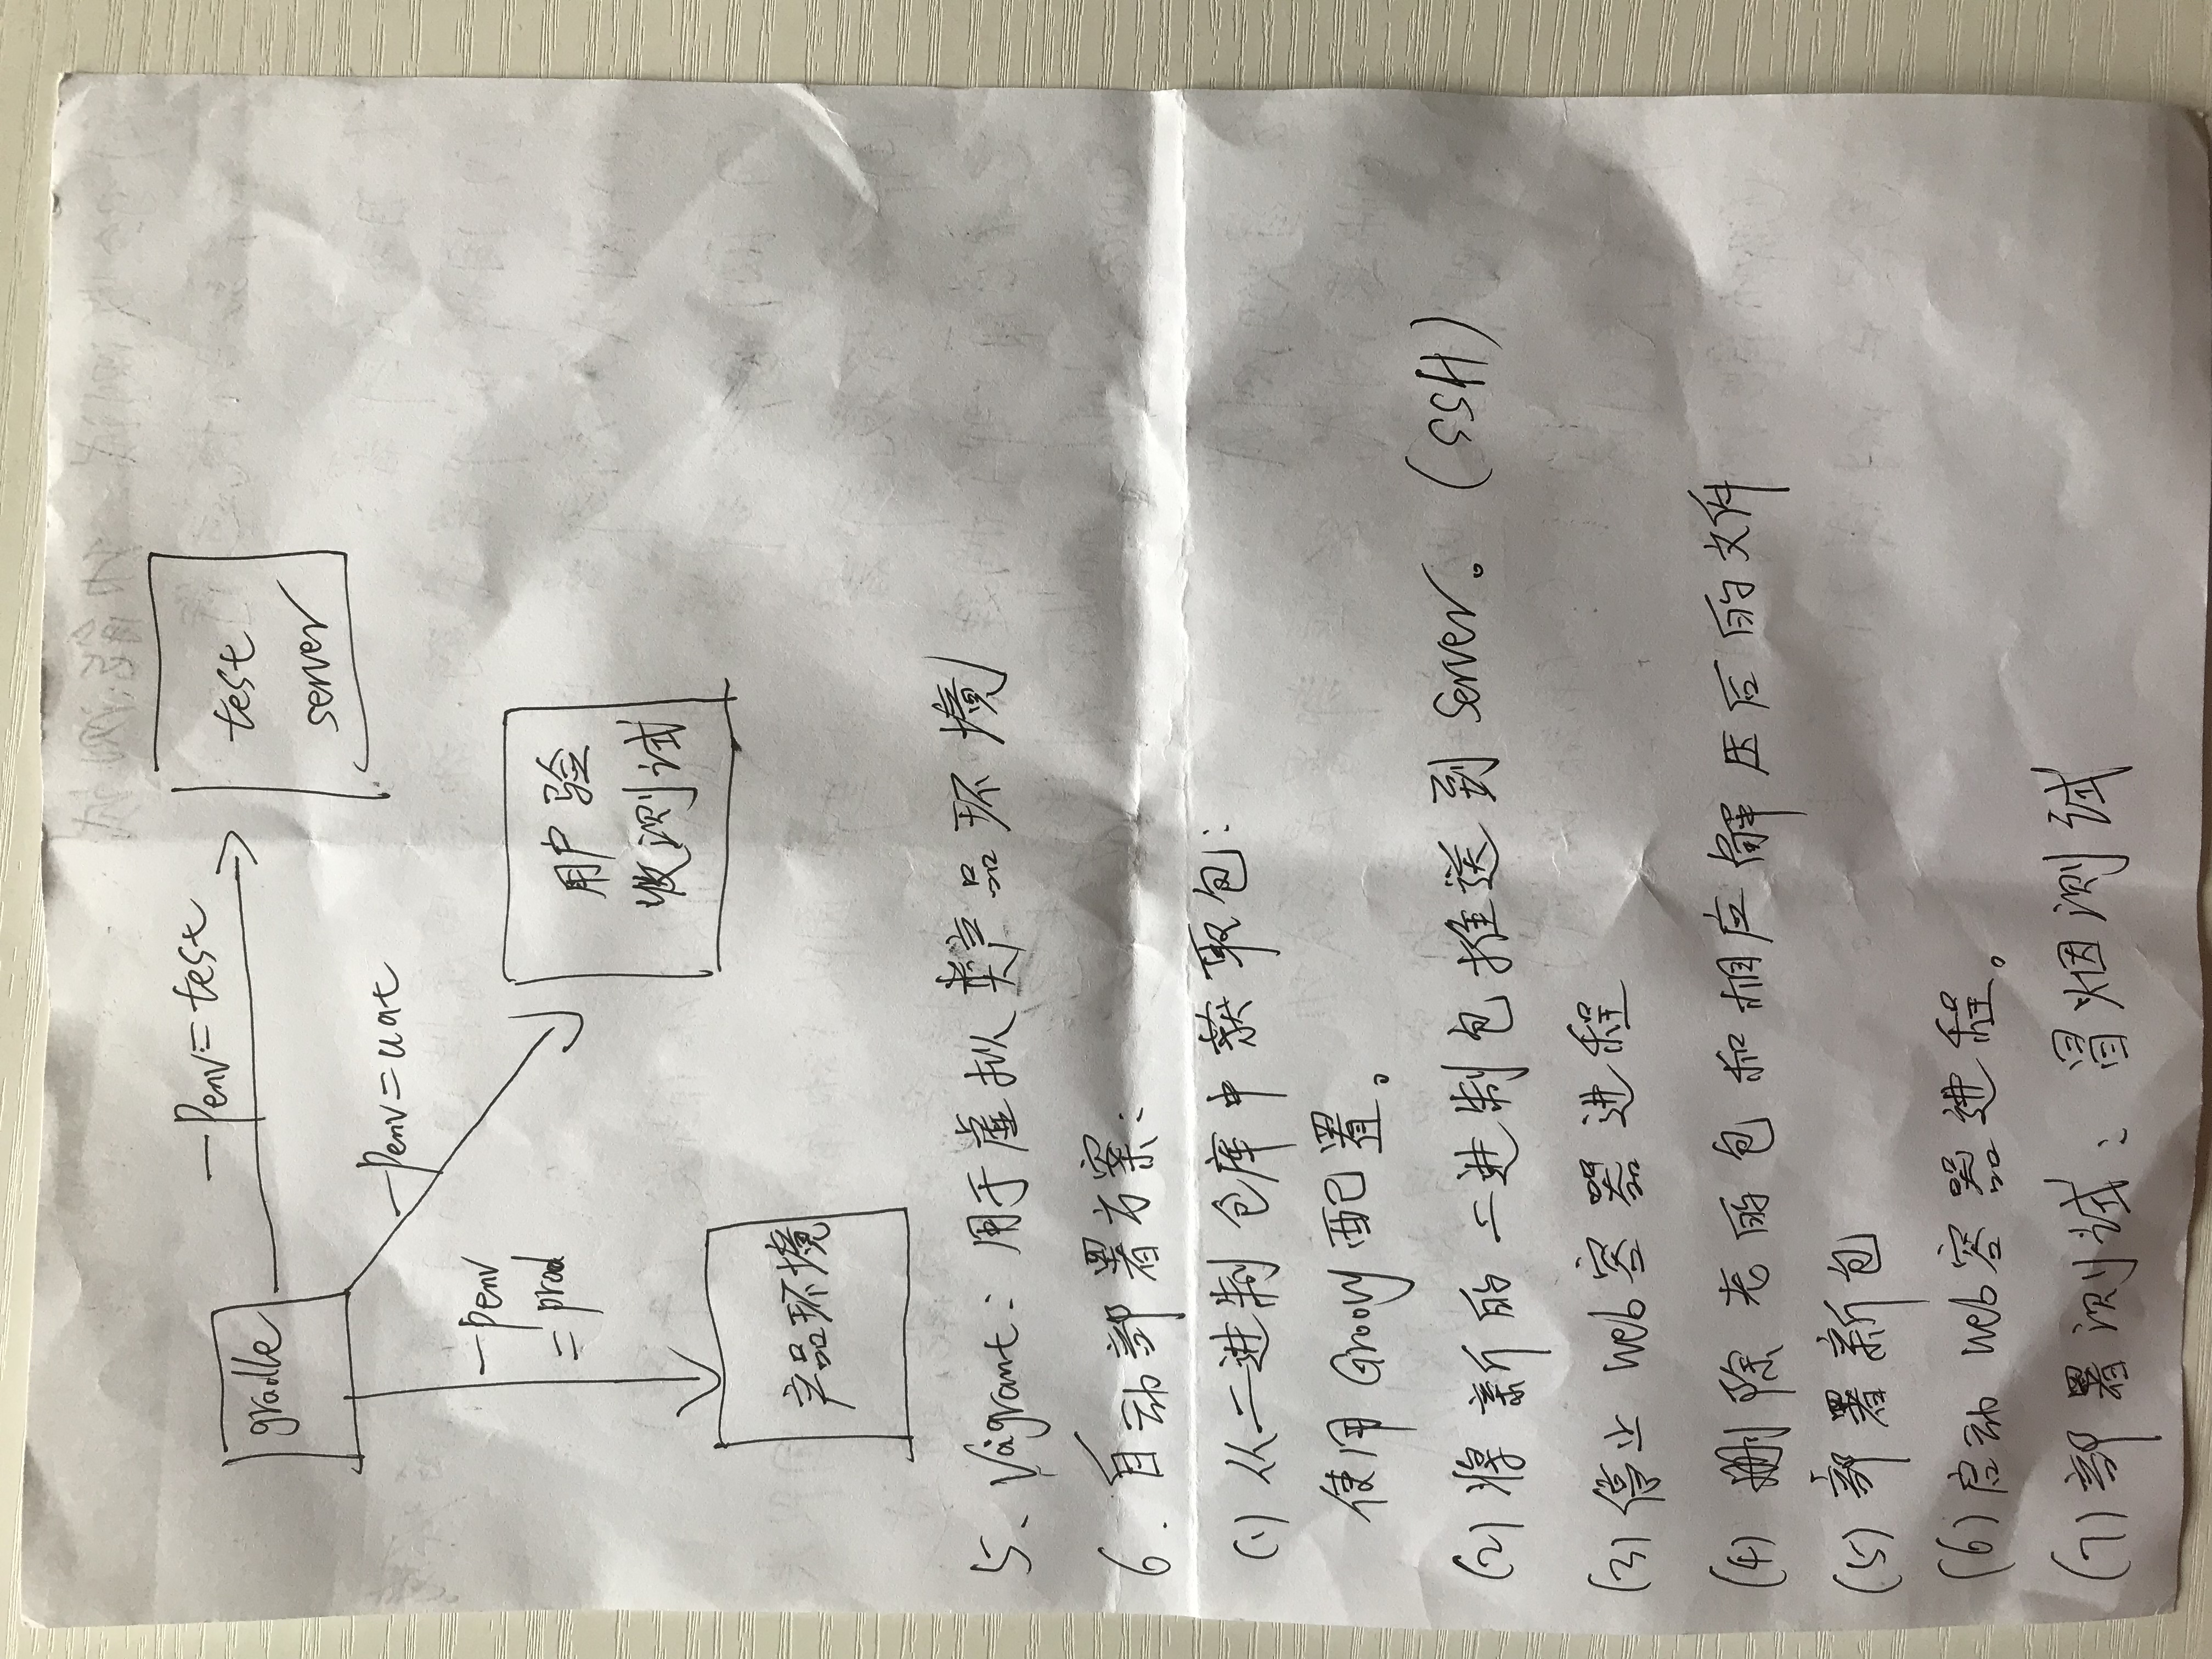 gradle
-Penv=test
test
server
-Penv=uat
-Penv
=prod
用户验
收测试
产品环境
5、Vagrant：用于虚拟类产品环境
6．自动部署方案：
(1) 从二进制仓库中获取包：
使用Groovy配置。
(2) 将新的二进制包推送到Server。(SSH)
(3) 停止web容器进程
(4) 删除老的包和相应解压后的文件
(5) 部署新包
(6) 启动web容器进程。
(7) 部署测试：冒烟测试